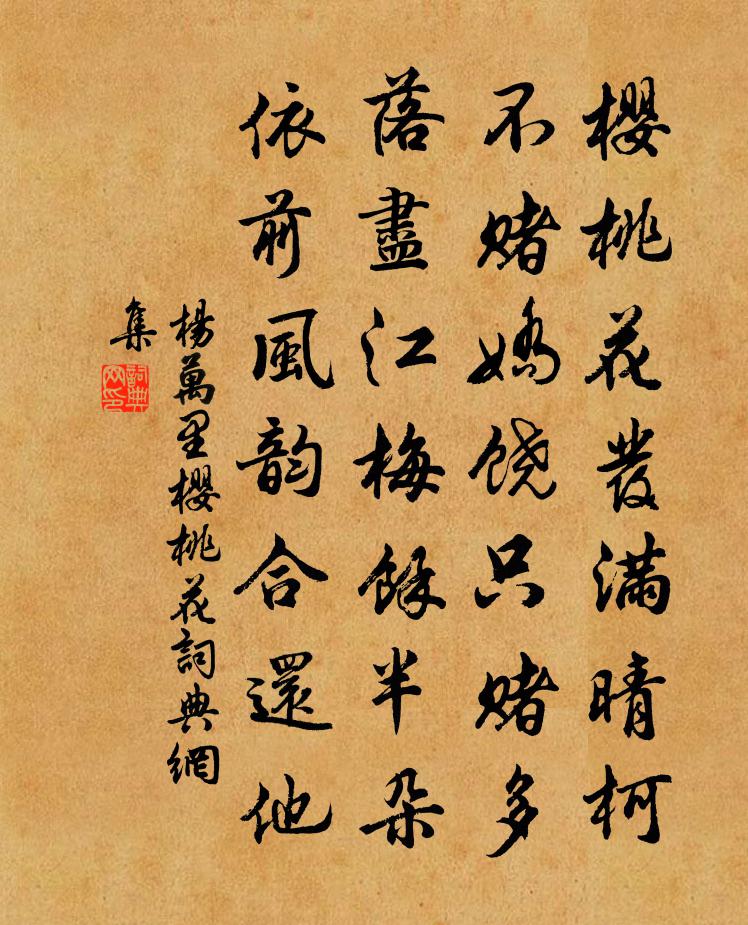 櫻桃花發滿晴柯
不賭嬌饒只賭多
落盡江梅餘半朵
依前風韵合還他
楊萬里櫻桃花詞典網
集
詞典网印